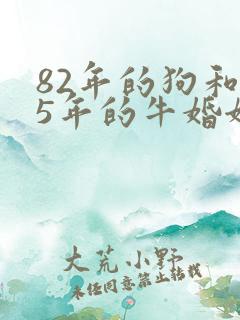 82年的狗和
5年的牛婚
大荒小野
未经同意禁止转载